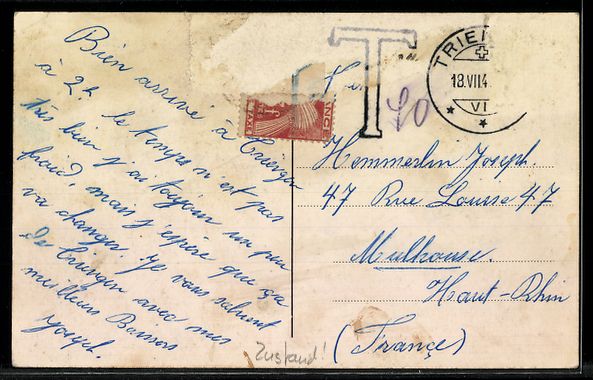 Bien arrivé à Triengen
à 2h. le temps n'est pas
très bien j'ai toujour un peu
froid, mais j'espère que ça
va changer. Je vous saluent
de Triengen avec mes
meilleurs Baisers
Joseph.
T
40
TRIEN
18.VII4
VI
NCE
Hemmerlin Joseph.
47 Rue Louise 47
Mulhouse.
Haut-Rhin
(France)
Zustand!